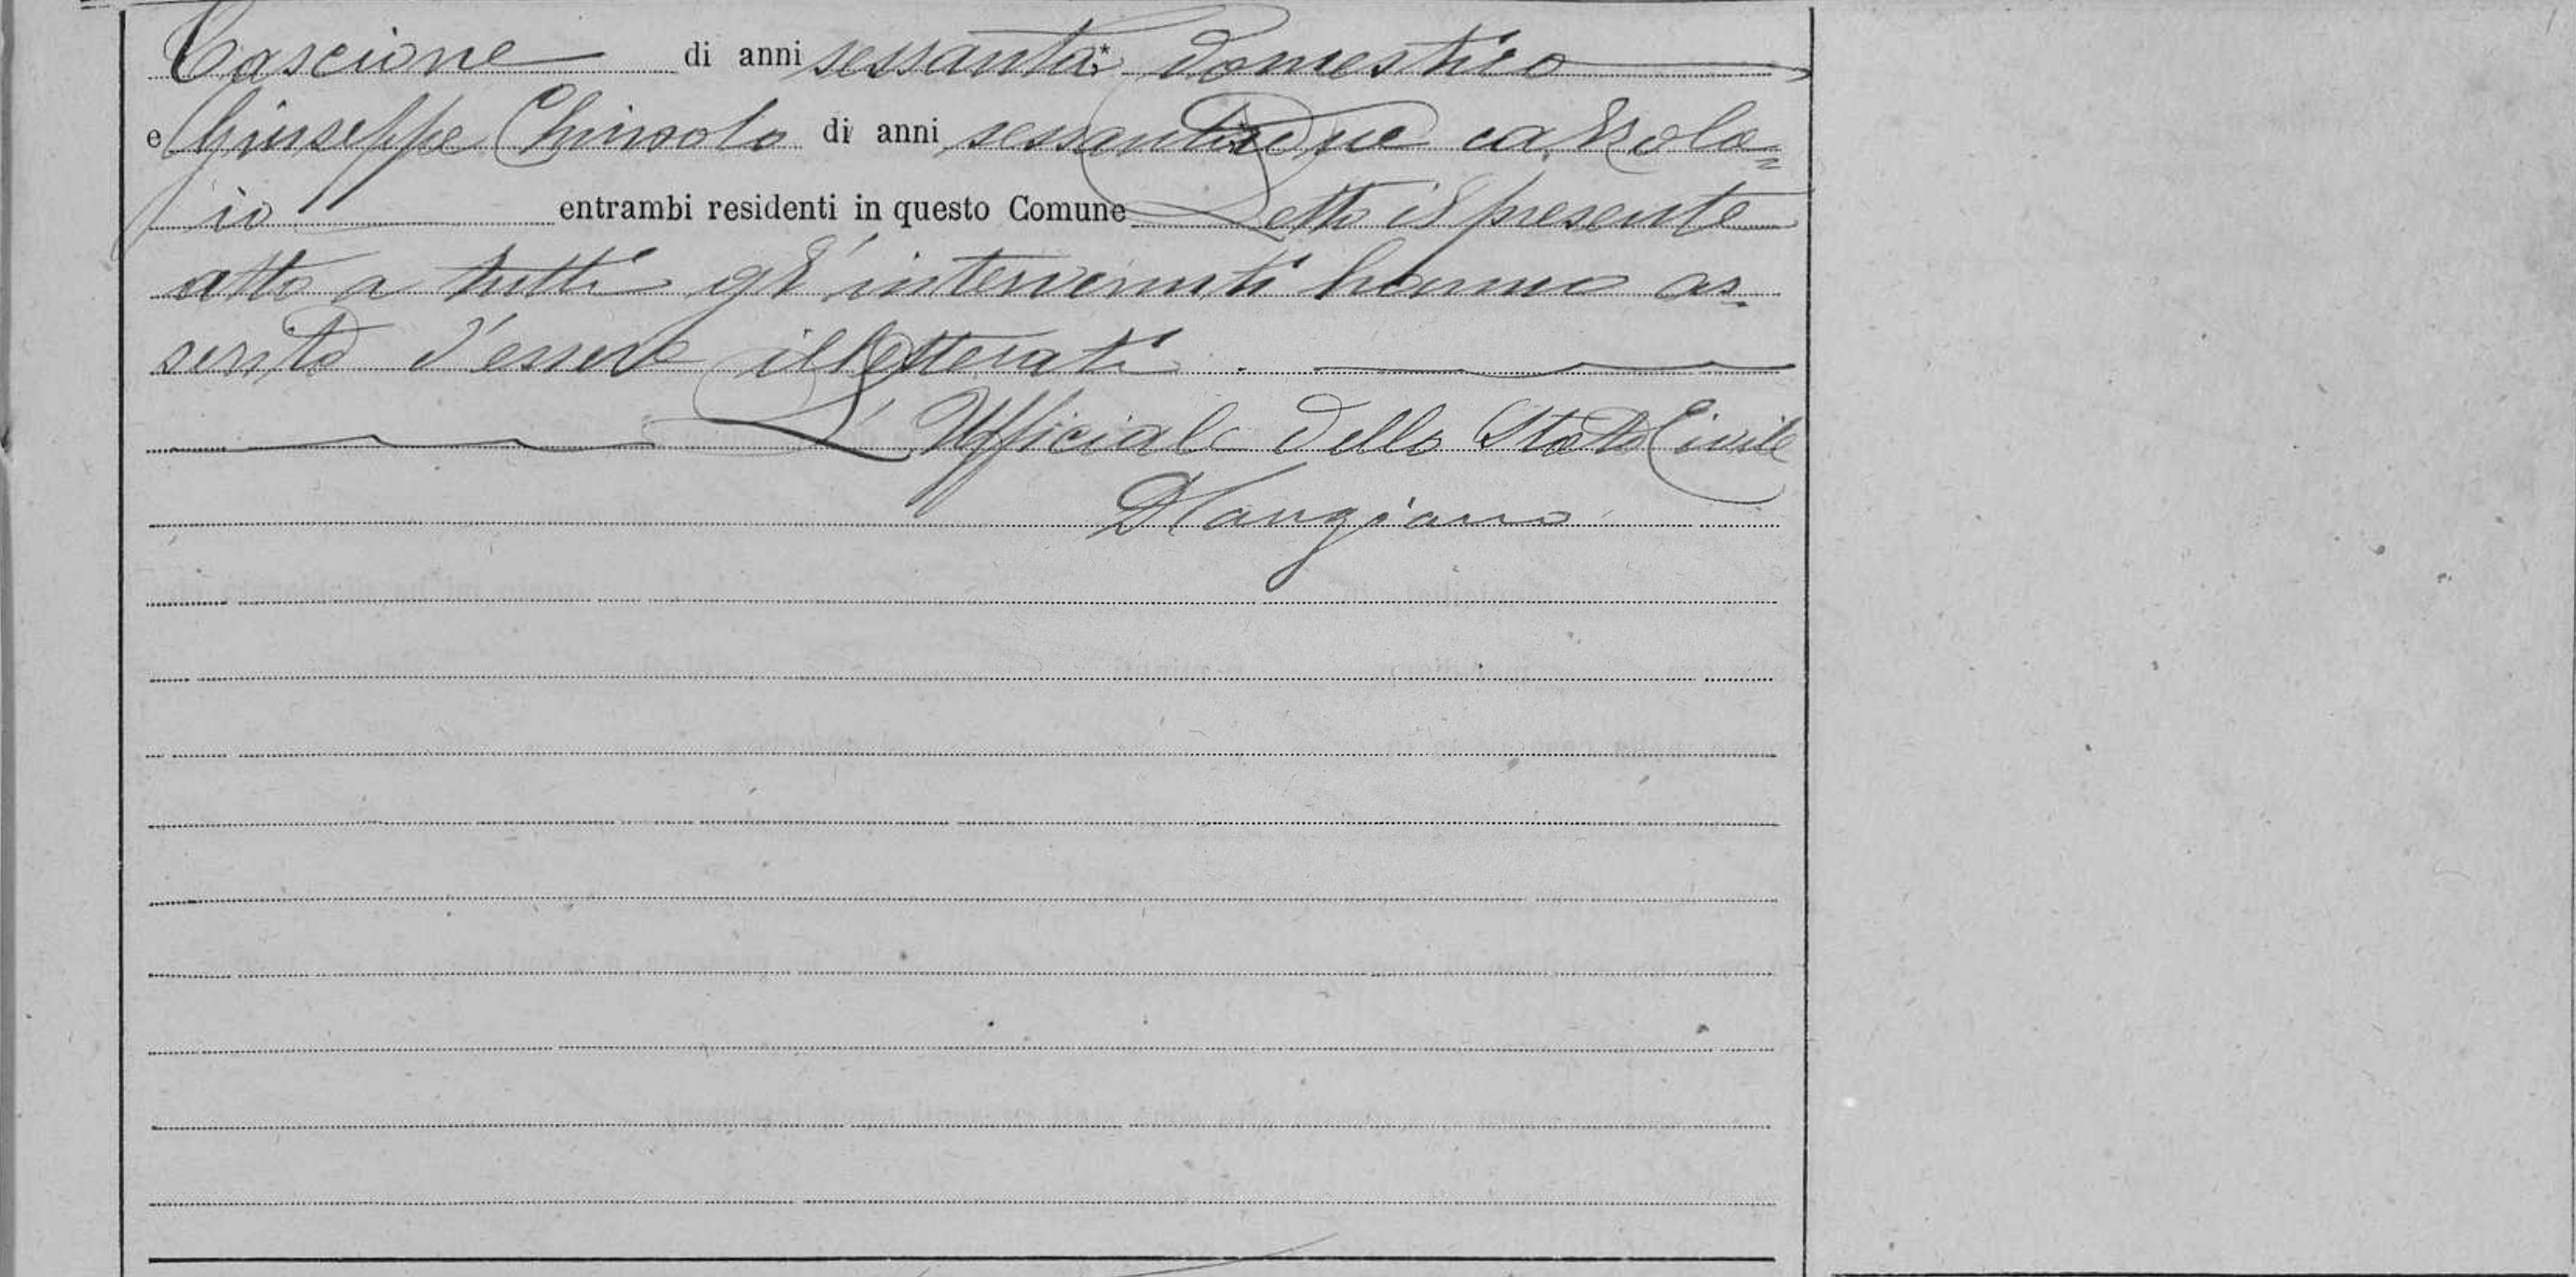 Cascione di anni sessanta domestico
e Giuseppe Chirsolo di anni sessantadue calzola=
io entrambi residenti in questo Comune Letto il presente
atto a tutti gl'intervenuti hanno as
serito d'essere illetterati.
L'Ufficiale dello Stato Civile
Mangiano